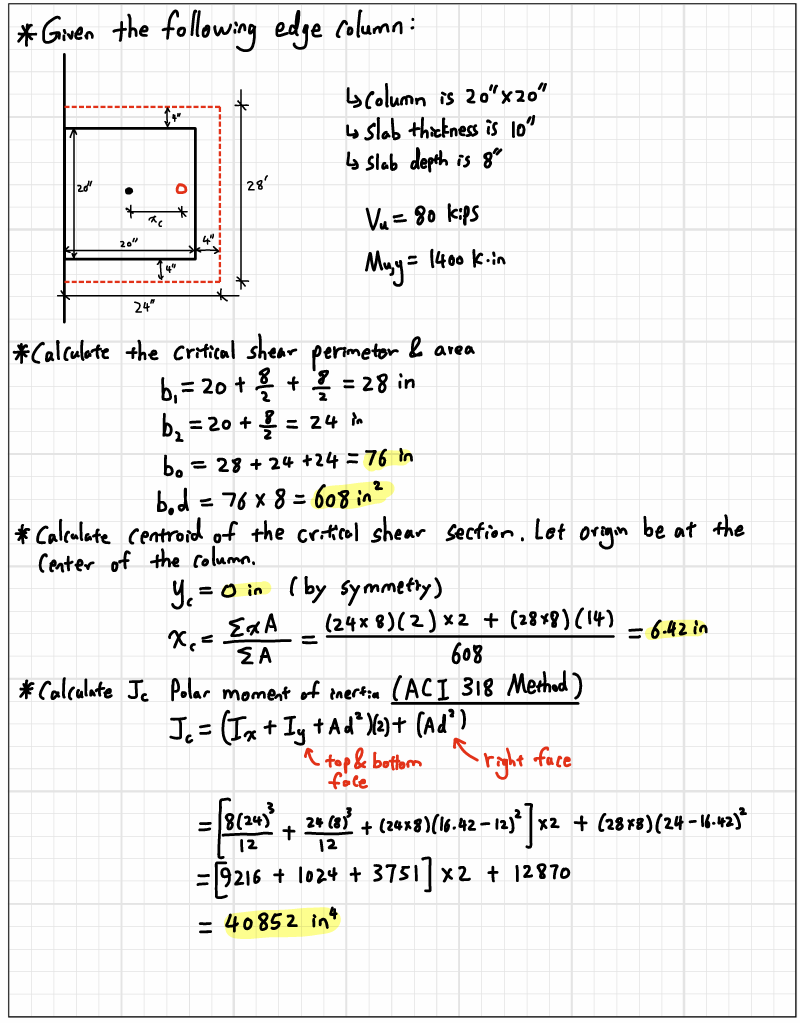 * Given the following edge column:
4"
↳ Column is 20" x 20"
↳ Slab thickness is 10"
↳ Slab depth is 8"
20"
28'
x_c
20"
4"
4"
24"
V_u = 80 kips
M_u,y = 1400 k·in
* Calculate the critical shear perimeter & area
b_1 = 20 + 8/2 + 8/2 = 28 in
b_2 = 20 + 8/2 = 24 in
b_o = 28 + 24 + 24 = 76 in
b_o d = 76 x 8 = 608 in²
* Calculate centroid of the critical shear section. Let origin be at the
center of the column.
y_c = 0 in (by symmetry)
x_c = ΣxA / ΣA = ((24x8)(2)x2 + (28x8)(14)) / 608 = 6.42 in
* Calculate J_c Polar moment of inertia (ACI 318 Method)
J_c = (I_x + I_y + Ad²)(2) + (Ad²)
top & bottom
face
right face
= [8(24)³/12 + 24(8)³/12 + (24x8)(16.42 - 12)²] x2 + (28x8)(24 - 16.42)²
= [9216 + 1024 + 3751] x2 + 12870
= 40852 in⁴